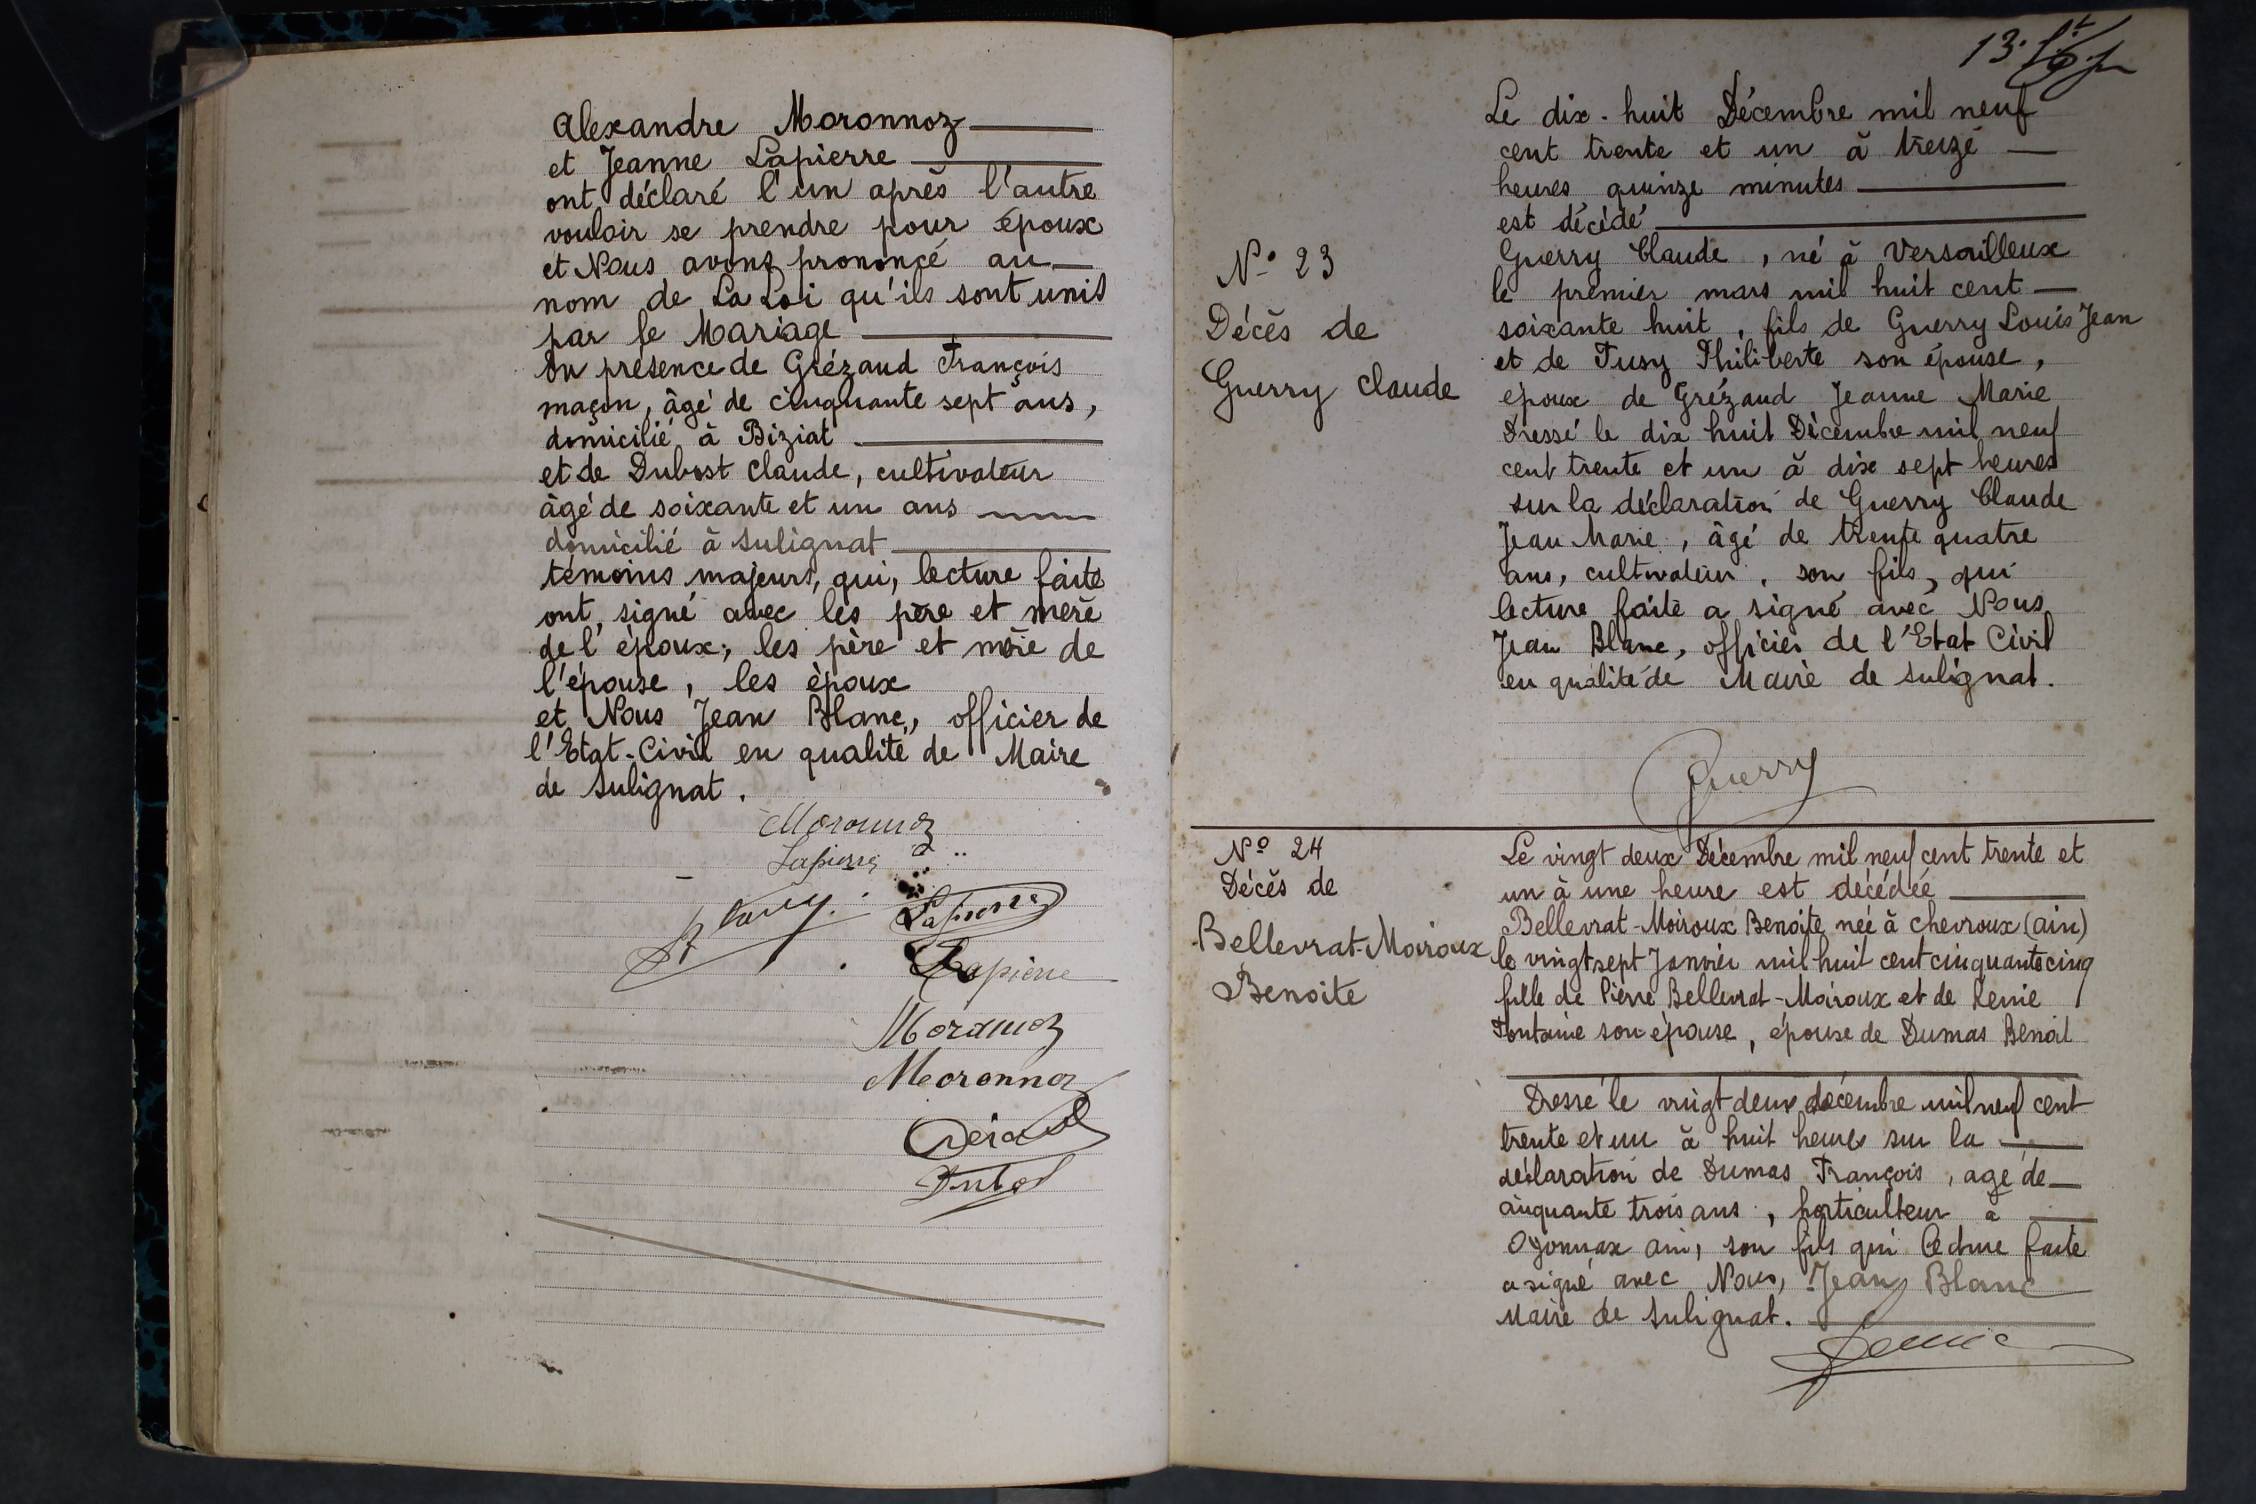 Alexandre Moronnoz
et Jeanne Lapierre
ont déclaré l'un après l'autre
vouloir se prendre pour époux
et Nous avons prononcé au
nom de La Loi qu'ils sont unis
par le Mariage
En présence de Grézaud François
maçon, âgé de cinquante sept ans,
domicilié à Biziat
et de Dubost Claude, cultivateur
âgé de soixante et un ans
domicilié à Sulignat
témoins majeurs, qui, lecture faite
ont signé avec les père et mère
de l'époux; les père et mère de
l'épouse, les époux
et Nous Jean Blanc, officier de
l'Etat-Civil en qualité de Maire
de Sulignat.
Moronnoz
Lapierre
Lapierre
Lapierre
Moronnoz
Moronnoz
13.
Le dix-huit Décembre mil neuf
cent trente et un à treize
heures quinze minutes
est décédé
N° 23
Décès de
Guerry Claude
Guerry Claude, né à Versailleux
le premier mars mil huit cent
soixante huit, fils de Guerry Louis Jean
et de Tusy Philiberte son épouse,
époux de Grézaud Jeanne Marie
Dressé le dix huit Décembre mil neuf
cent trente et un à dix sept heures
sur la déclaration de Guerry Claude
Jean Marie, âgé de trente quatre
ans, cultivateur, son fils, qui
lecture faite a signé avec Nous
Jean Blanc, officier de l'Etat Civil
en qualité de Maire de Sulignat.
Guerry
N° 24
Décès de
Bellevrat-Moiroux
Benoite
Le vingt deux Décembre mil neuf cent trente et
un à une heure est décédée
Bellevrat-Moiroux Benoite née à Chevroux (ain)
le vingt sept Janvier mil huit cent cinquante cinq
fille de Pierre Bellevrat-Moiroux et de
Fontaine son épouse, épouse de Dumas Benoit
Dressé le vingt deux décembre mil neuf cent
trente et un à huit heures sur la
déclaration de Dumas François, agé de
cinquante trois ans, horticulteur à
Oyonnax ain, son fils qui lecture faite
a signé avec Nous, Jean Blanc
Maire de Sulignat.